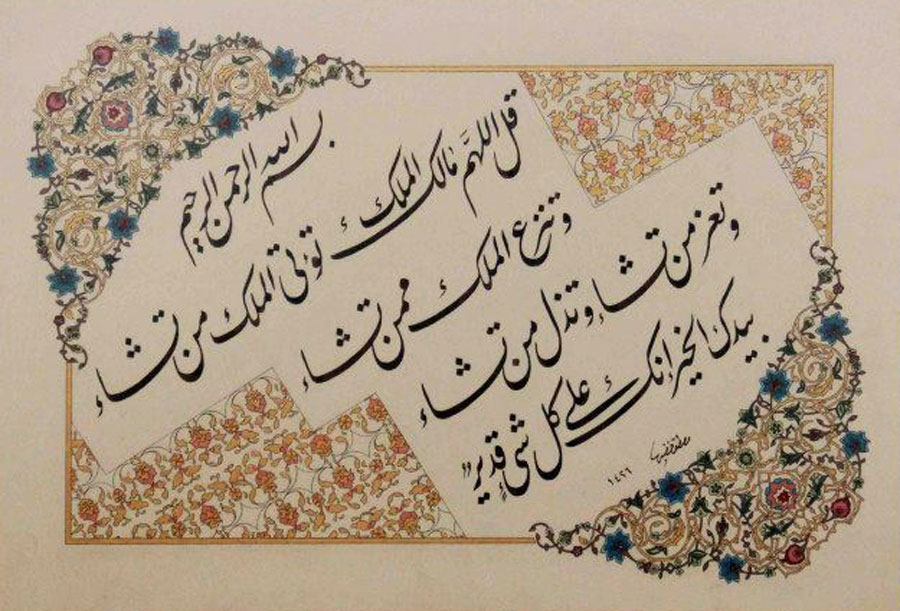 بسم الله الرحمن الرحيم
قل اللهم مالك الملك تؤتي الملك من تشاء
وتنزع الملك ممن تشاء
وتعز من تشاء وتذل من تشاء
بيدك الخير إنك على كل شيء قدير
١٤٢٦